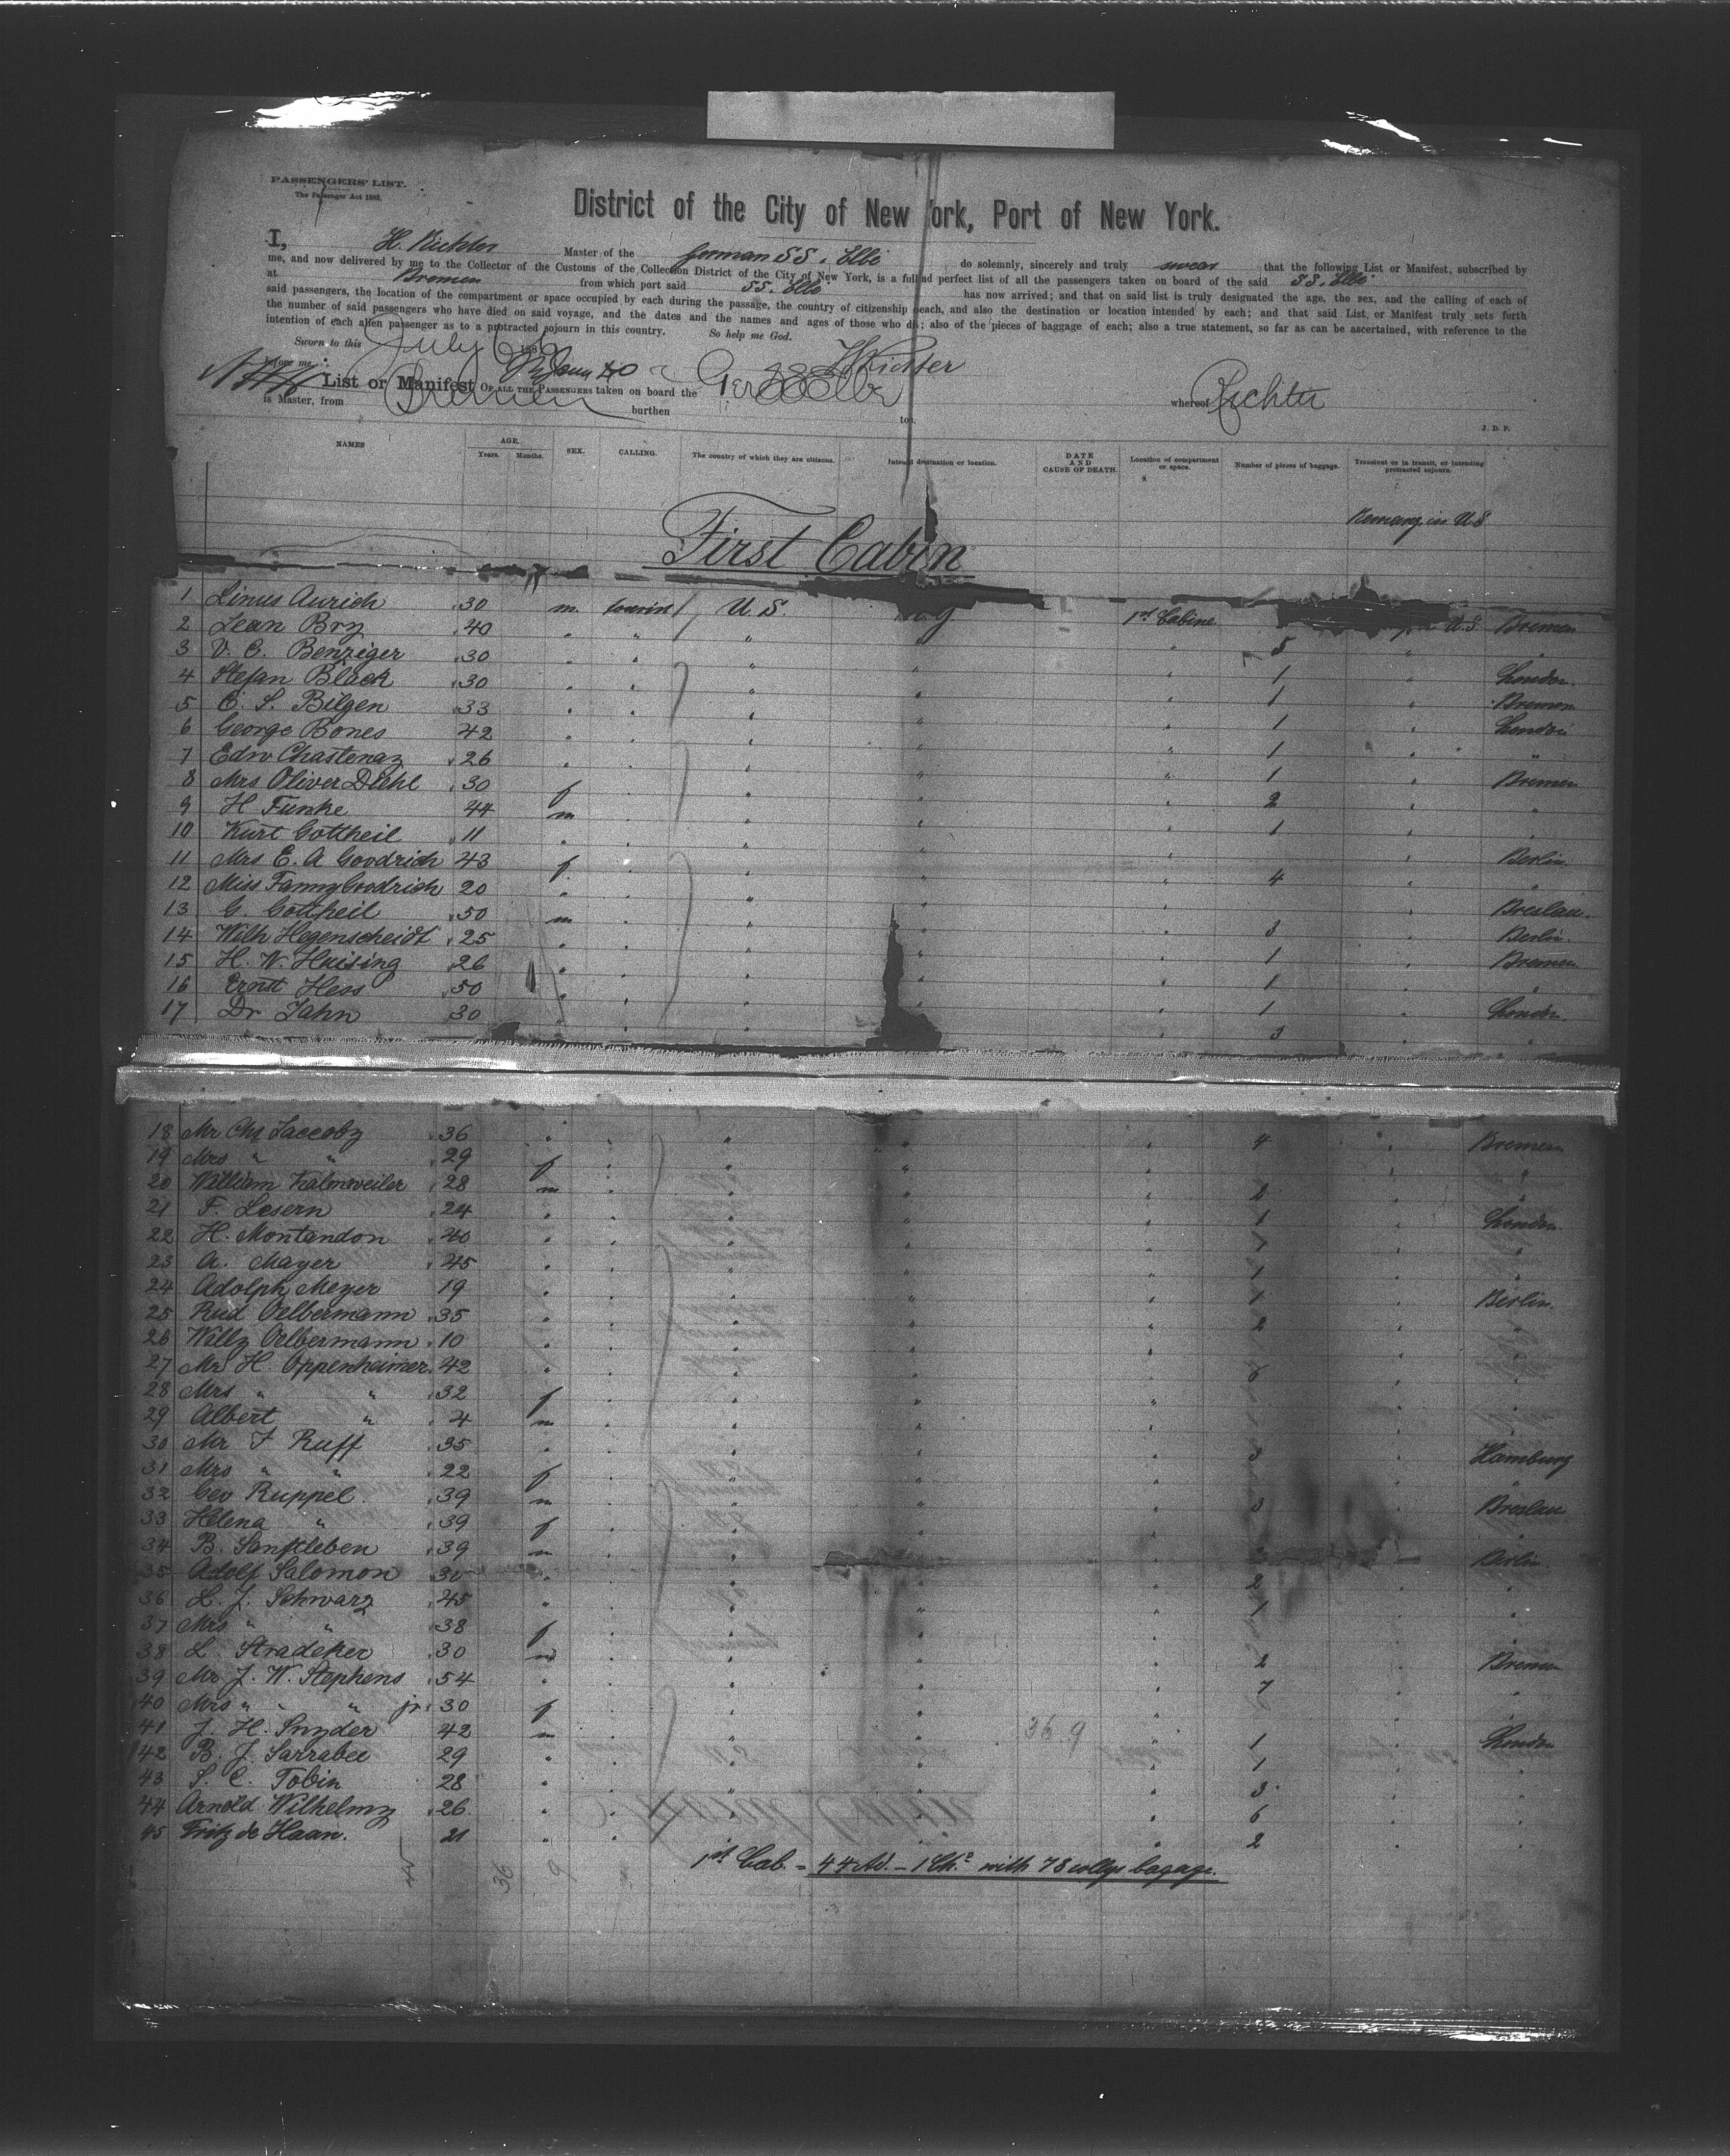 PASSENGERS' LIST.
The Passenger Act 1882.
District of the City of New York, Port of New York.
I, H. Richter Master of the German SS. Elbe do solemnly, sincerely and truly swear that the following List or Manifest, subscribed by
me, and now delivered by me to the Collector of the Customs of the Collection District of the City of New York, is a full and perfect list of all the passengers taken on board of the said SS. Elbe
at Bremen from which port said SS. Elbe has now arrived; and that on said list is truly designated the age, the sex, and the calling of each of
said passengers, the location of the compartment or space occupied by each during the passage, the country of citizenship each, and also the destination or location intended by each; and that said List, or Manifest truly sets forth
the number of said passengers who have died on said voyage, and the dates and the names and ages of those who di ; also of the pieces of baggage of each; also a true statement, so far as can be ascertained, with reference to the
intention of each alien passenger as to a protracted sojourn in this country. So help me God.
Sworn to this July 6 188
before me HRichter
List or Manifest OF ALL THE PASSENGERS taken on board the Ger SS Elbe whereof Richter
is Master, from Bremen burthen tos.
J. D. P.
NAMES AGE. Years. Months. SEX. CALLING. The country of which they are citizens. Intend destination or location. DATE AND CAUSE OF DEATH. Location of compartment or space. Number of pieces of baggage. Transient or in transit, or intending protracted sojourn.
in U S
First Cabin
1 Linus Aurich 30 m. tourist U. S. 1st Cabine U.S. Bremen
2 Jean Bry 40 " " " " " 5 " "
3 V. C. Benziger 30 " " " " " 1 " London.
4 Stefan Black 30 " " " " " 1 " Bremen
5 C. S. Bilgen 33 " " " " " 1 " London
6 George Bones 42 " " " " " 1 " "
7 Edw Chastenay 26 " " " " " 1 " Bremen
8 Mrs Oliver Diehl 30 f " " " " 2 " "
9 H Funke 44 m " " " " 1 " "
10 Kurt Gottheil 11 " " " " " " Berlin.
11 Mrs E. A Goodrich 43 f. " " " " 4 " "
12 Miss Fanny Goodrich 20 " " " " " " Breslau.
13 G. Gottheil 50 m " " " " 3 " Berlin.
14 Wilh Hegenscheidt 25 " " " " " 1 " Bremen
15 H. W. Huising 26 " " " " " 1 " "
16 Ernst Hess 50 " " " " " 1 " London.
17 Dr Jahn 30 " " " " 3 " "
18 Mr Chs Jaccoby 36 " " " " " 4 " Bremen
19 Mrs " " 29 f " " " " " "
20 William Kalmweiler 28 m " " " " 2 " "
21 F. Lesern 24 " " " " " 1 " London.
22 H. Montandon 40 " " " " " 1 " "
23 A. Mayer 45 " " " " " 1 " "
24 Adolph Meyer 19 " " " " " 1 " Berlin.
25 Rud Oelbermann 35 " " " " " 2 " "
26 Willy Oelbermann 10 " " " " " " "
27 Mr H. Oppenheimer 42 " " " " " 6 " "
28 Mrs " " 32 f " " " " " "
29 Albert " 4 m " " " " " "
30 Mr F Ruff 35 " " " " " 3 " Hamburg
31 Mrs " " 22 f " " " " " "
32 Geo Ruppel 39 m " " " " 3 " Breslau
33 Helena " 39 f " " " " " "
34 B. Sanftleben 39 m " " " " " Berlin.
35 Adolf Salomon 30 " " " " " 2 " "
36 L. J. Schwarz 45 " " " " " 1 " "
37 Mrs " " 38 f " " " " " "
38 L. Stradeker 30 m " " " " 2 " Bremen
39 Mr J. W. Stephens 54 " " " " " 7 " "
40 Mrs " " " jr. 30 f " " " " " "
41 J. H. Snyder 42 m " " " 36.9 " 1 " London
42 B. J. Sarrabee 29 " " " " " 1 " "
43 S. C. Tobin 28 " " " " " 3 " "
44 Arnold Wilhelmy 26 " " " " " 6 " "
45 Fritz de Haan. 21 " " " " " 2 " "
1st Cab. = 44 Ad. - 1 Ch. with 78 collys bagage.
36 9